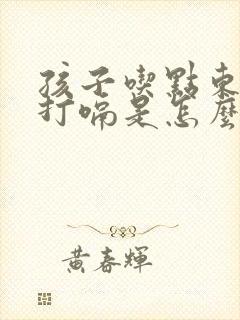 孩子喫點東
打嗝是怎麼
黃春輝